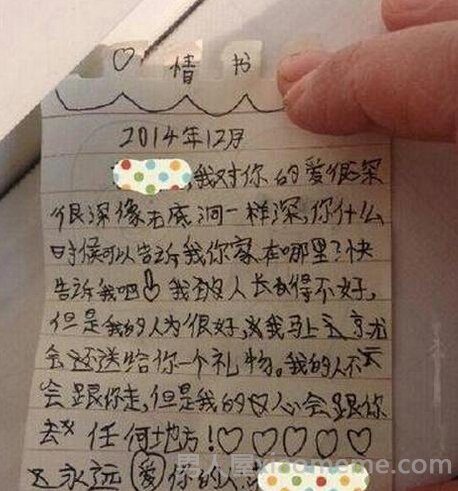 ♡ 情 书
2014年12月
,我对你的爱很深
很深像无底洞一样深,你什么
时候可以告诉我你家在哪里?快
告诉我吧 我 人长 得不好,
但是我的人为很好, 我马上
会还送给你一个礼物。我的人不
会跟你走,但是我的 心会跟你
去 任何地方!♡♡♡♡♡
永远爱你的人:
男人屋xiaomeme.com